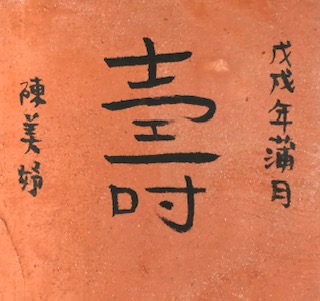 戊戌年蒲月
壽
陳美娟